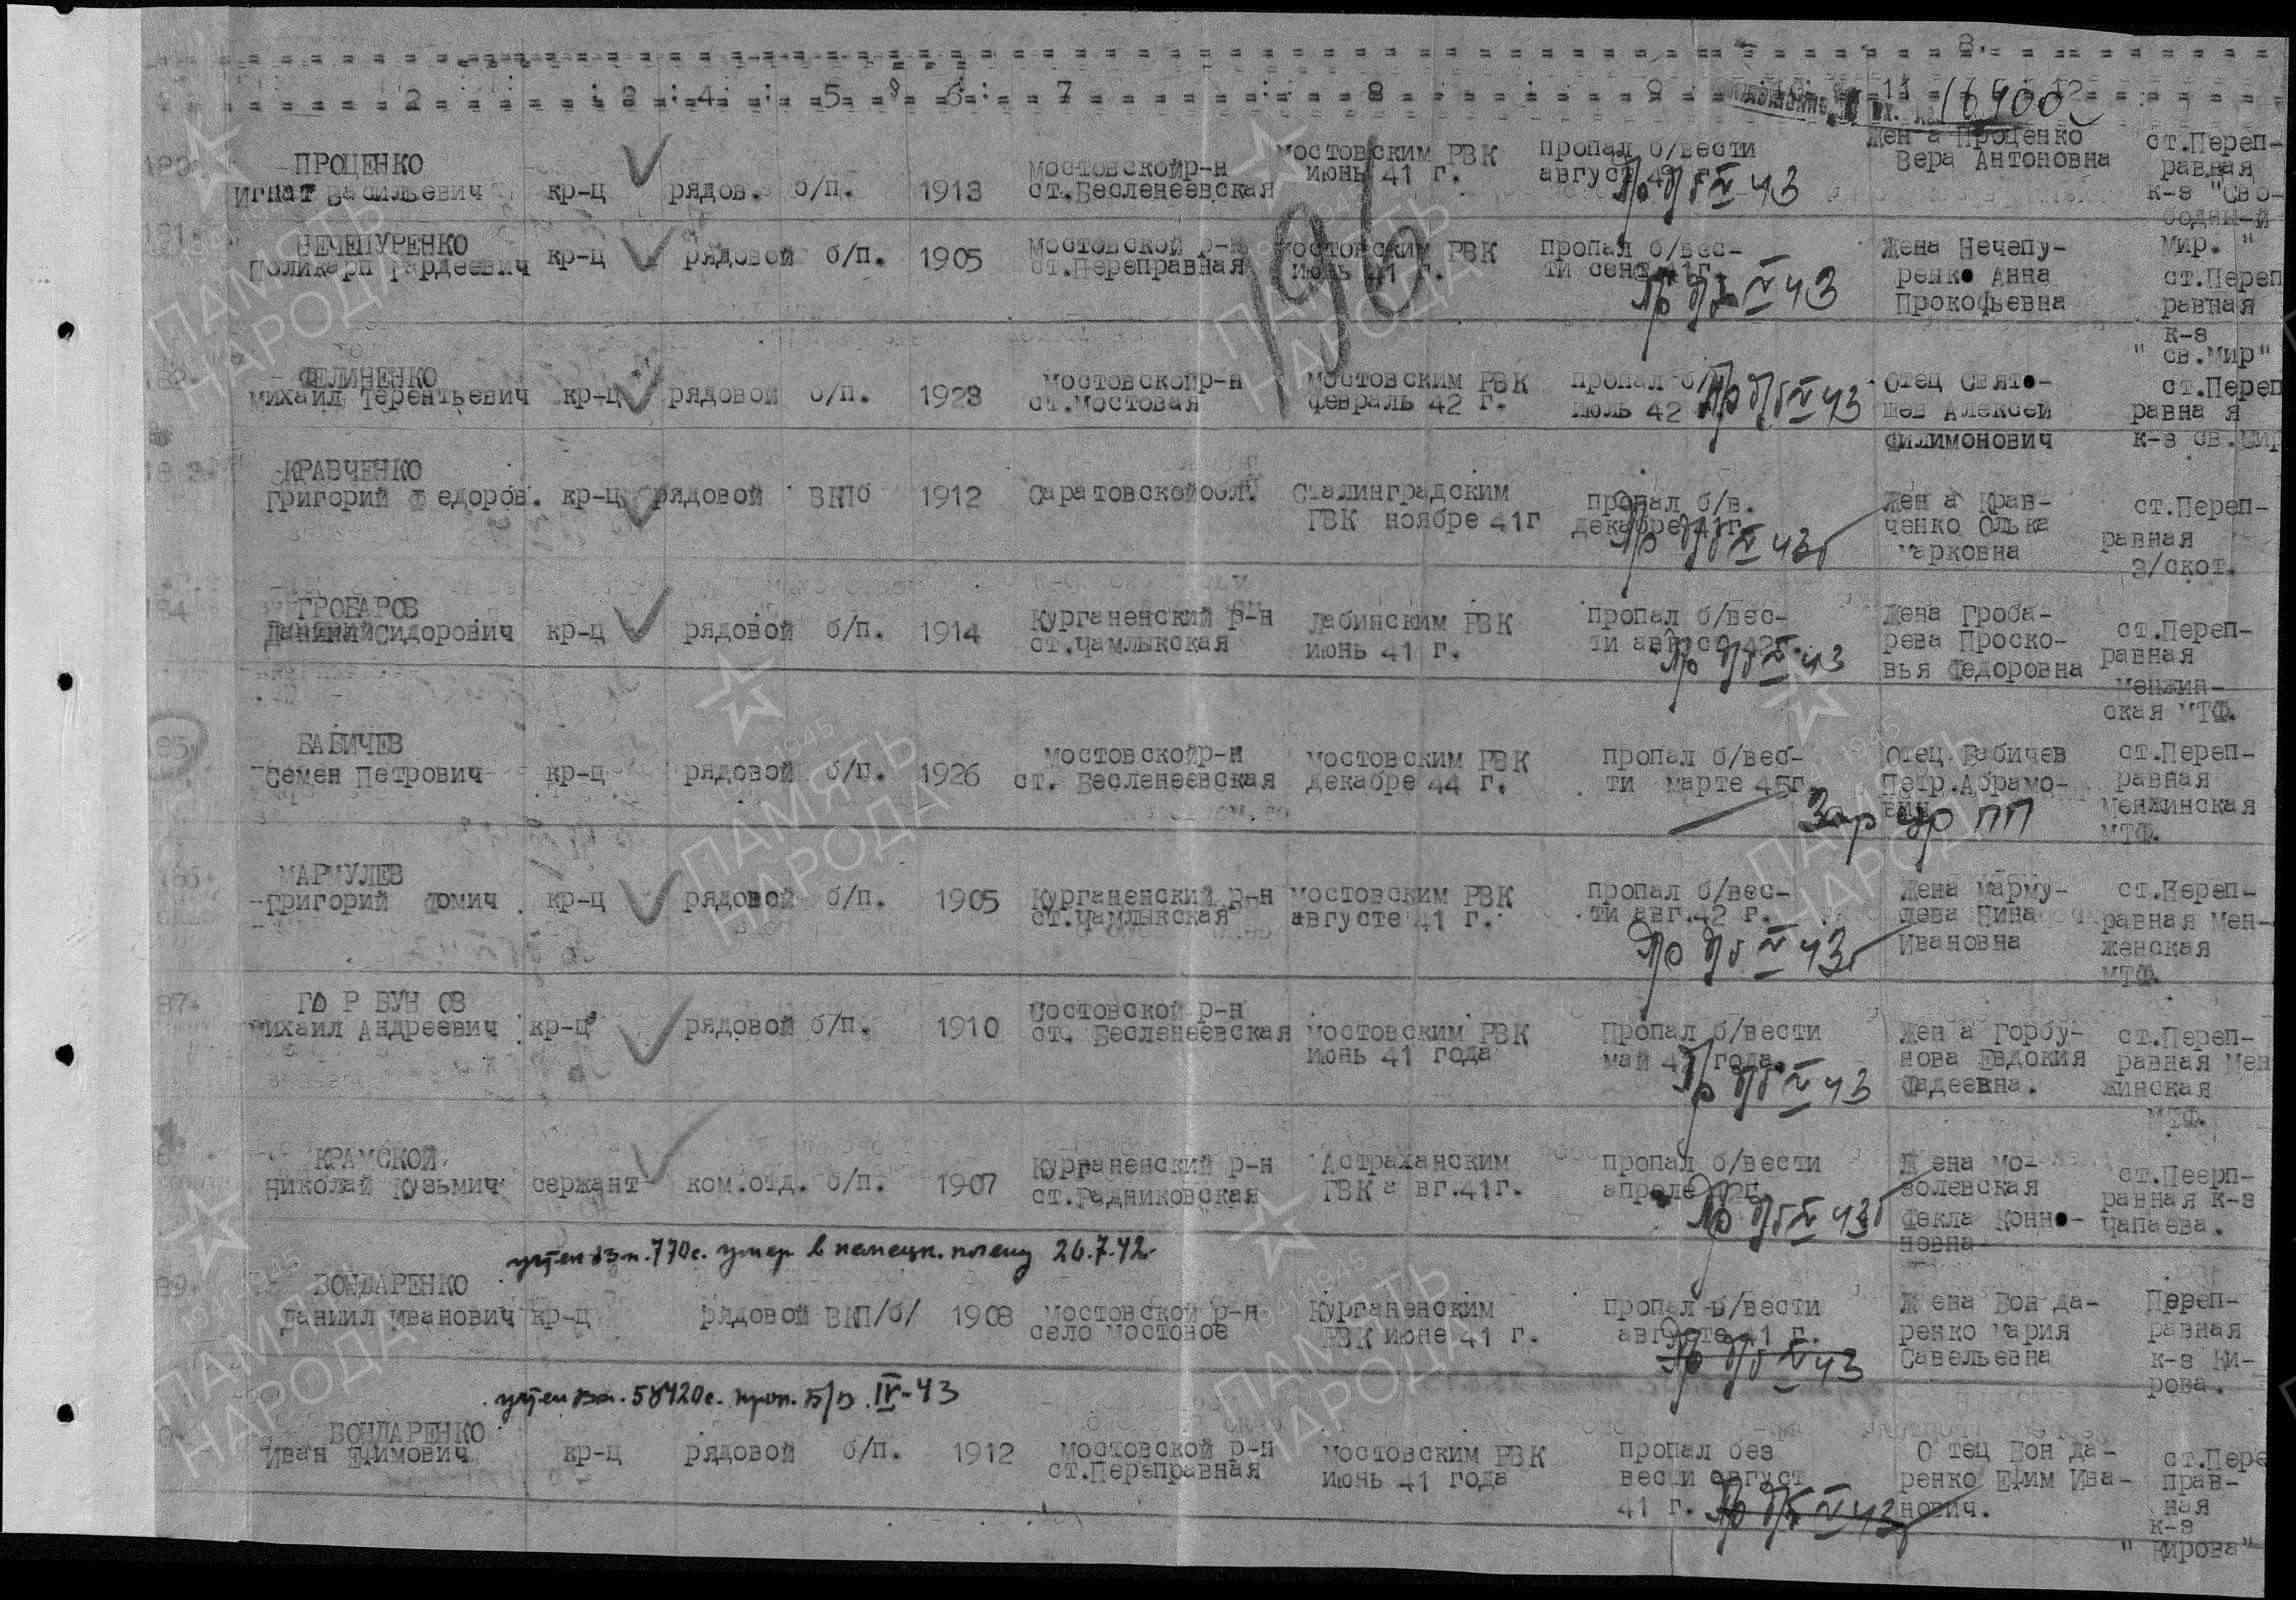 8.
2 3 4 5 6 7 8 9 11 12
Вх. 16400с
196
180.
ПРОЦЕНКО
Игнат Васильевич кр-ц рядов. б/п. 1913
Мостовскойр-н
ст.Бесленеевская
Мостовским РВК
июнь 41 г.
пропал б/вести
август 42 г.
Пр б/в IV 43
Жен а Проценко
Вера Антоновна
ст.Переп-
равная
к-з "Сво-
бодны-й
Мир. "
181.
НЕЧЕПУРЕНКО
Поликарп Гардеевич кр-ц рядовой б/п. 1905
Мостовской р-н
ст.Переправная
Мостовским РВК
июнь 41 г.
пропал б/вес-
ти сент.41г.
Пр б/в IV 43
Жена Нечепу-
ренко Анна
Прокофьевна
ст.Переп
равная
к-з
" св.Мир"
182.
ФЕЛИНЕНКО
Михаил Терентьевич кр-ц рядовой б/п. 1923
Мостовскойр-н
ст.Мостовая
Мостовским РВК
февраль 42 г.
пропал б/
июль 42
Пр б/в IV 43
Отец Свято-
шев Алексей
Филимонович
ст.Переп
равна я
к-з св.Мир
183.
КРАВЧЕНКО
Григорий Ф едоров. кр-ц рядовой ВКПб 1912
Саратовскойобл.
Сталинградским
ГВК ноябре 41г
пропал б/в.
декабре 41г.
Пр б/в IV 43г
Жен а Крав-
ченко Олька
Марковна
ст.Переп-
равная
з/скот.
184.
ГРОБАРОВ
Даниил Сидорович кр-ц рядовой б/п. 1914
Курганенский р-н
ст.Чамлыкская
Лабинским РВК
июнь 41 г.
пропал б/вес-
ти август 42г.
Пр б/в IV 43
Жена Гроба-
рева Проско-
вья Федоровна
ст.Переп-
равная
Менжин-
ская МТФ.
185.
БАБИЧЕВ
Семен Петрович кр-ц рядовой б/п. 1926
Мостовскойр-н
ст. Бесленеевская
Мостовским РВК
декабре 44 г.
пропал б/вес-
ти марте 45г.
Зар др ПП
Отец Бабичев
Петр.Абрамо-
вич
ст.Переп-
равная
Менжинская
МТФ.
186.
МАРМУЛЕВ
Григорий Фомич кр-ц рядовой б/п. 1905
Курганенский р-н
ст.Чамлыкская
Мостовским РВК
августе 41 г.
пропал б/вес-
ти авг.42 г.
Пр б/в IV 43г
Жена Марму-
лева Нина
Ивановна
ст.Переп-
равная Мен-
женская
МТФ.
187.
ГО Р БУН ОВ
Михаил Андреевич кр-ц рядовой б/п. 1910
Мостовской р-н
ст. Бесленеевская
Мостовским РВК
июнь 41 года
Пропал б/вести
май 42 года.
Пр б/в IV 43
Жен а Горбу-
нова Евдокия
Фадеевна.
ст.Переп-
равная Мен
жинская
МТФ.
КРАМСКОЙ
Николай Кузьмич сержант ком.отд. б/п. 1907
Курганенский р-н
ст.Радниковская
Астраханским
ГВК а вг.41г.
пропал б/вести
апреле 42г.
Пр б/в IV 43г
Ж ена Мо-
золевская
Фекла Конно-
новна
ст.Пеерп-
равная к-з
Чапаева.
учтен вх.770с. умер в немецк. плену 26.7.42
189.
БОНДАРЕНКО
Даниил Иванович кр-ц рядовой ВКП/б/ 1908
Мостовской р-н
село Мостовое
Курганенским
РВК июне 41 г.
пропал б/вести
августе 41 г.
Пр б/в IV 43
Ж ена Бон да-
ренко Мария
Савельевна
Переп-
равная
к-з Ки-
рова.
учтен вх. 58420с. проп. Б/В. IV-43
БОНДАРЕНКО
Иван Ефимович кр-ц рядовой б/п. 1912
Мостовской р-н
ст.Переправная
Мостовским РВК
июнь 41 года
пропал без
вести август
41 г.
Пр б/в IV 43г
О тец Бон да-
ренко Ефим Ива-
нович.
ст.Пере
прав-
ная
к-з
" Кирова"
1941 1945
ПАМЯТЬ
НАРОДА